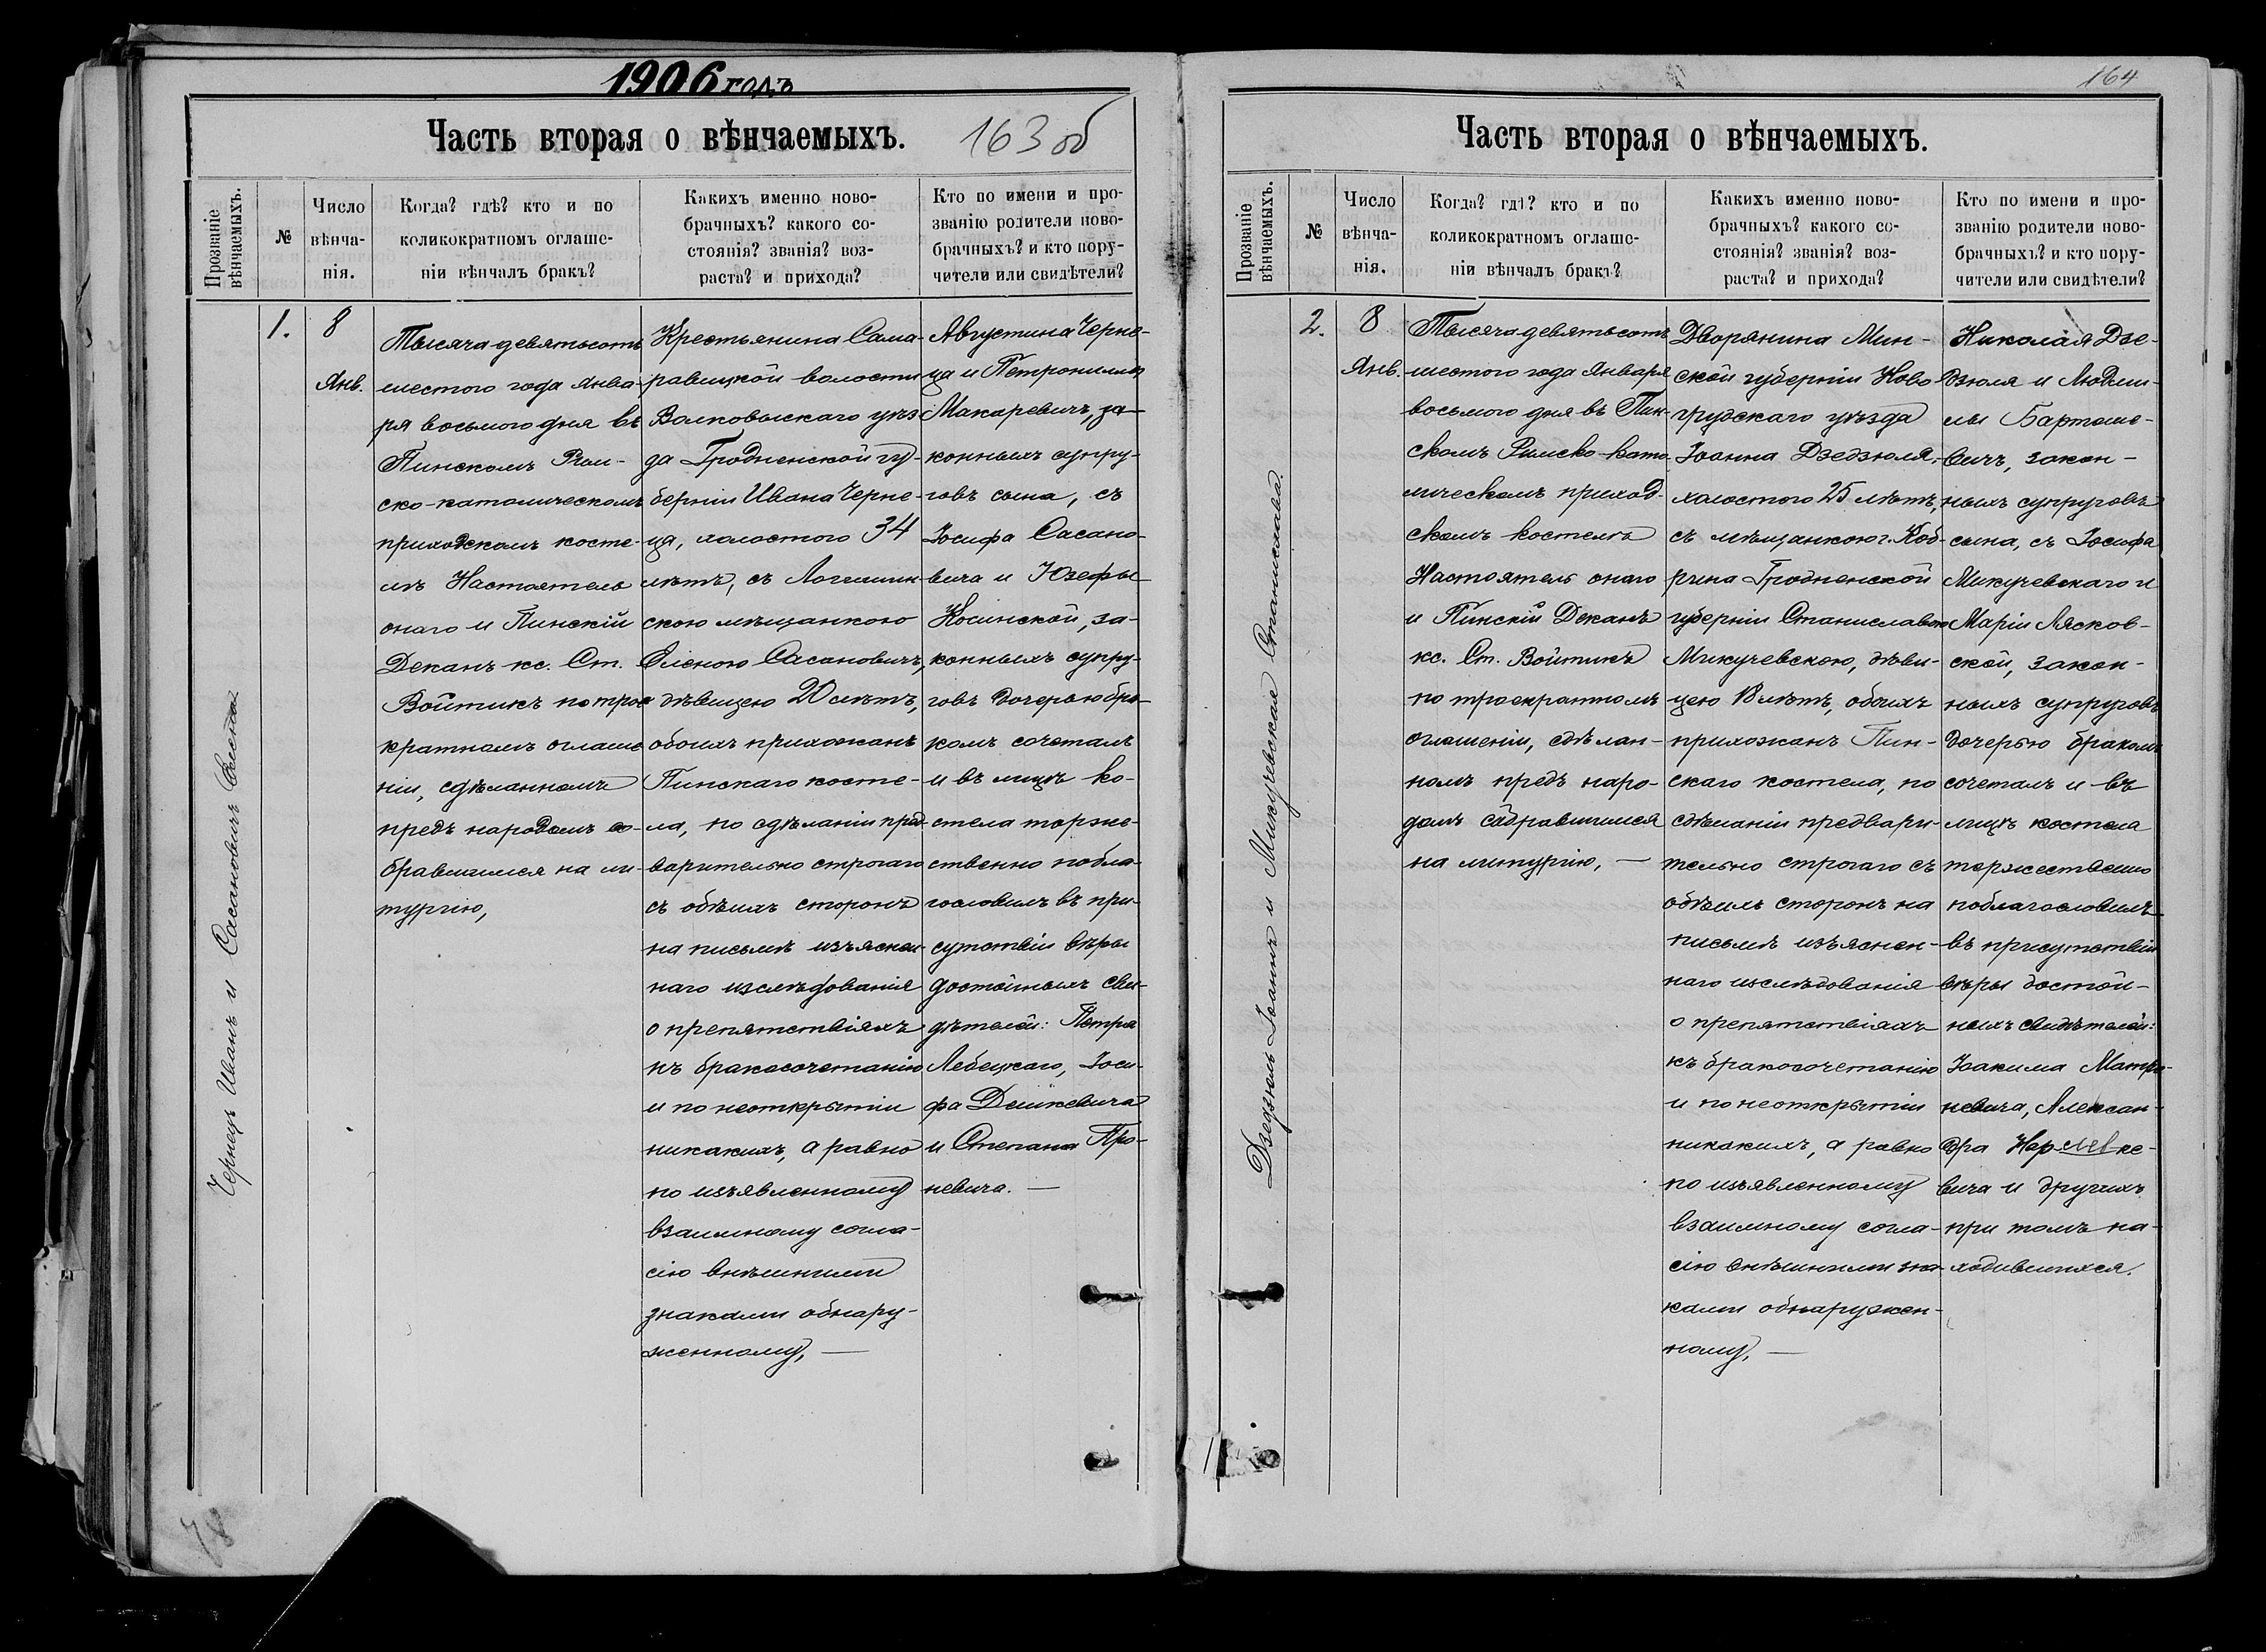 1906 годъ
Часть вторая о вѣнчаемыхъ.
163 об
Прозваніе вѣнчаемыхъ.
№
Число вѣнча-
нія.
Когда? гдѣ? кто и по
коликократномъ оглаше-
ніи вѣнчалъ бракъ?
Какихъ именно ново-
брачныхъ? какого со-
стоянія? званія? воз-
раста? и прихода?
Кто по имени и про-
званію родители ново-
брачныхъ? и кто пору-
чители или свидѣтели?
Чернецъ Иванъ и Сасановичъ
1.
8
Янв.
Тысяча девятьсотъ
шестого года Янва-
ря восьмого дня въ
Пинскомъ Рим-
ско-католическомъ
приходскомъ косте-
лѣ Настоятель
онаго и Пинскій
Деканъ кс. Ст.
Войтикъ по трое
кратномъ оглаше
ніи, сдѣланномъ
предъ народомъ со-
бравшимся на ли-
тургію,
Крестьянина Сама-
ровицкой волости
Волковыскаго уѣз
да Гродненской гу-
берніи Ивана Черне-
ца, холостого 34
лѣтъ, съ Логишин
скою мѣщанкою
Еленою Сасановичъ,
дѣвицею 20 лѣтъ,
обоихъ прихожанъ
Пинскаго косте-
ла, по сдѣланіи пред
варительно строгаго
съ обѣихъ сторонъ
на письмѣ изъяснен
наго изслѣдованія
о препятствіяхъ
къ бракосочетанію
и по неоткрытіи
никакихъ, а равно
по изъявленному
взаимному согла-
сію внѣшними
знаками обнару-
женному, —
Августина Черне-
ца и Петронилы
Макаревичъ, за-
конныхъ супру-
говъ сына, съ
Іосифа Сасано-
вича и Юзефы
Носинской, за-
конныхъ супру-
говъ дочерью бра-
комъ сочеталъ
и въ лицѣ ко-
стела торже-
ственно побла-
гословилъ въ при-
сутствіи вѣры
достойныхъ сви-
дѣтелей: Петра
Лебецкаго, Іоси-
фа Дашкевича
и Степана Про-
невича. —
164
Часть вторая о вѣнчаемыхъ.
Прозваніе вѣнчаемыхъ.
№
Число
вѣнча-
нія.
Когда? гдѣ? кто и по
коликократномъ оглаше-
ніи вѣнчалъ бракъ?
Какихъ именно ново-
брачныхъ? какого со-
стоянія? званія? воз-
раста? и прихода?
Кто по имени и про-
званію родители ново-
брачныхъ? и кто пору-
чители или свидѣтели?
Дзедзюль Іоаннъ и Микучевская Станислава.
2.
8
Янв.
Тысяча девятьсотъ
шестого года Января
восьмого дня въ Пин-
скомъ Римско-като
лическомъ приход-
скомъ костелѣ
Настоятель онаго
и Пинскій Деканъ
кс. Ст. Войтикъ
по троекратномъ
оглашеніи, сдѣлан-
номъ предъ наро-
домъ собравшимся
на литургію, —
Дворянина Мин-
ской губерніи Ново
грудскаго уѣзда
Іоанна Дзедзюля,
холостого 25 лѣтъ,
съ мѣщанкою г. Коб-
рина Гродненской
губерніи Станиславою
Микучевскою, дѣви-
цею 18 лѣтъ, обоихъ
прихожанъ Пин-
скаго костела, по
сдѣланіи предвари-
тельно строгаго съ
обѣихъ сторонъ на
письмѣ изъяснен-
наго изслѣдованія
о препятствіяхъ
къ бракосочетанію
и по неоткрытіи
никакихъ, а равно
по изъявленному
взаимному согла-
сію внѣшними зна
ками обнаружен-
ному, —
Николая Дзе-
дзюля и Людми-
лы Бартоше-
вичъ, закон-
ныхъ супруговъ
сына, съ Іосифа
Микучевскаго и
Маріи Лясков-
ской, закон-
ныхъ супруговъ
дочерью бракомъ
сочеталъ и въ
лицѣ костела
торжественно
поблагословилъ
въ присутствіи
вѣры достой-
ныхъ свидѣтелей:
Іоакима Матре-
невича, Алексан-
дра
вича и другихъ
при томъ на-
ходившихся.
78